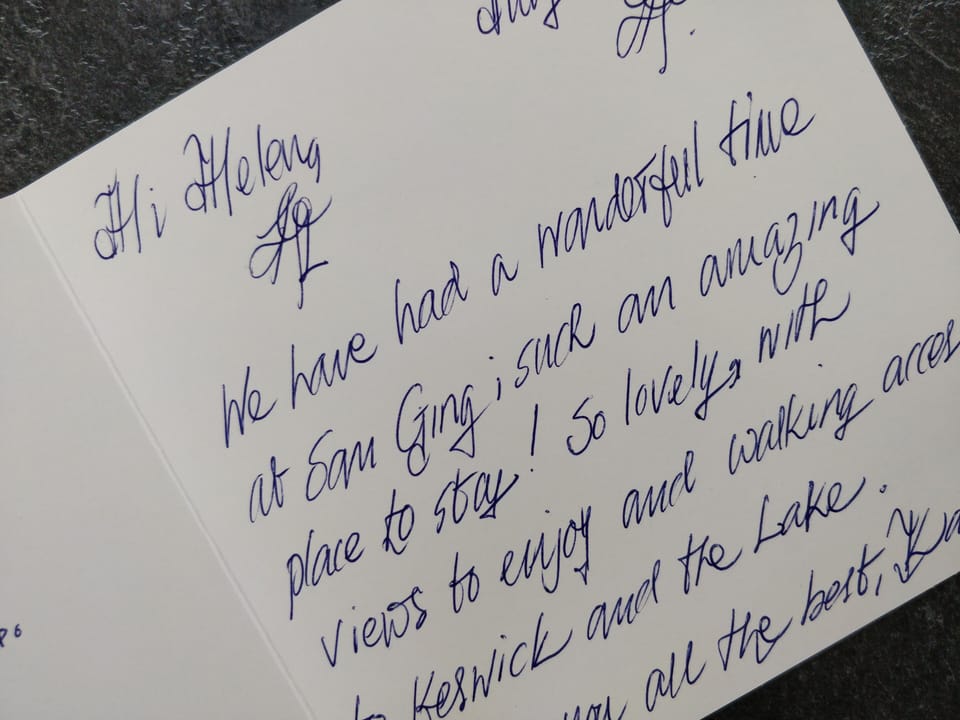 Hi Helena,
We have had a wonderful time
at San Ging, such an amazing
place to stay! So lovely, with
views to enjoy and walking acces
to Keswick and the Lake.
you all the best,